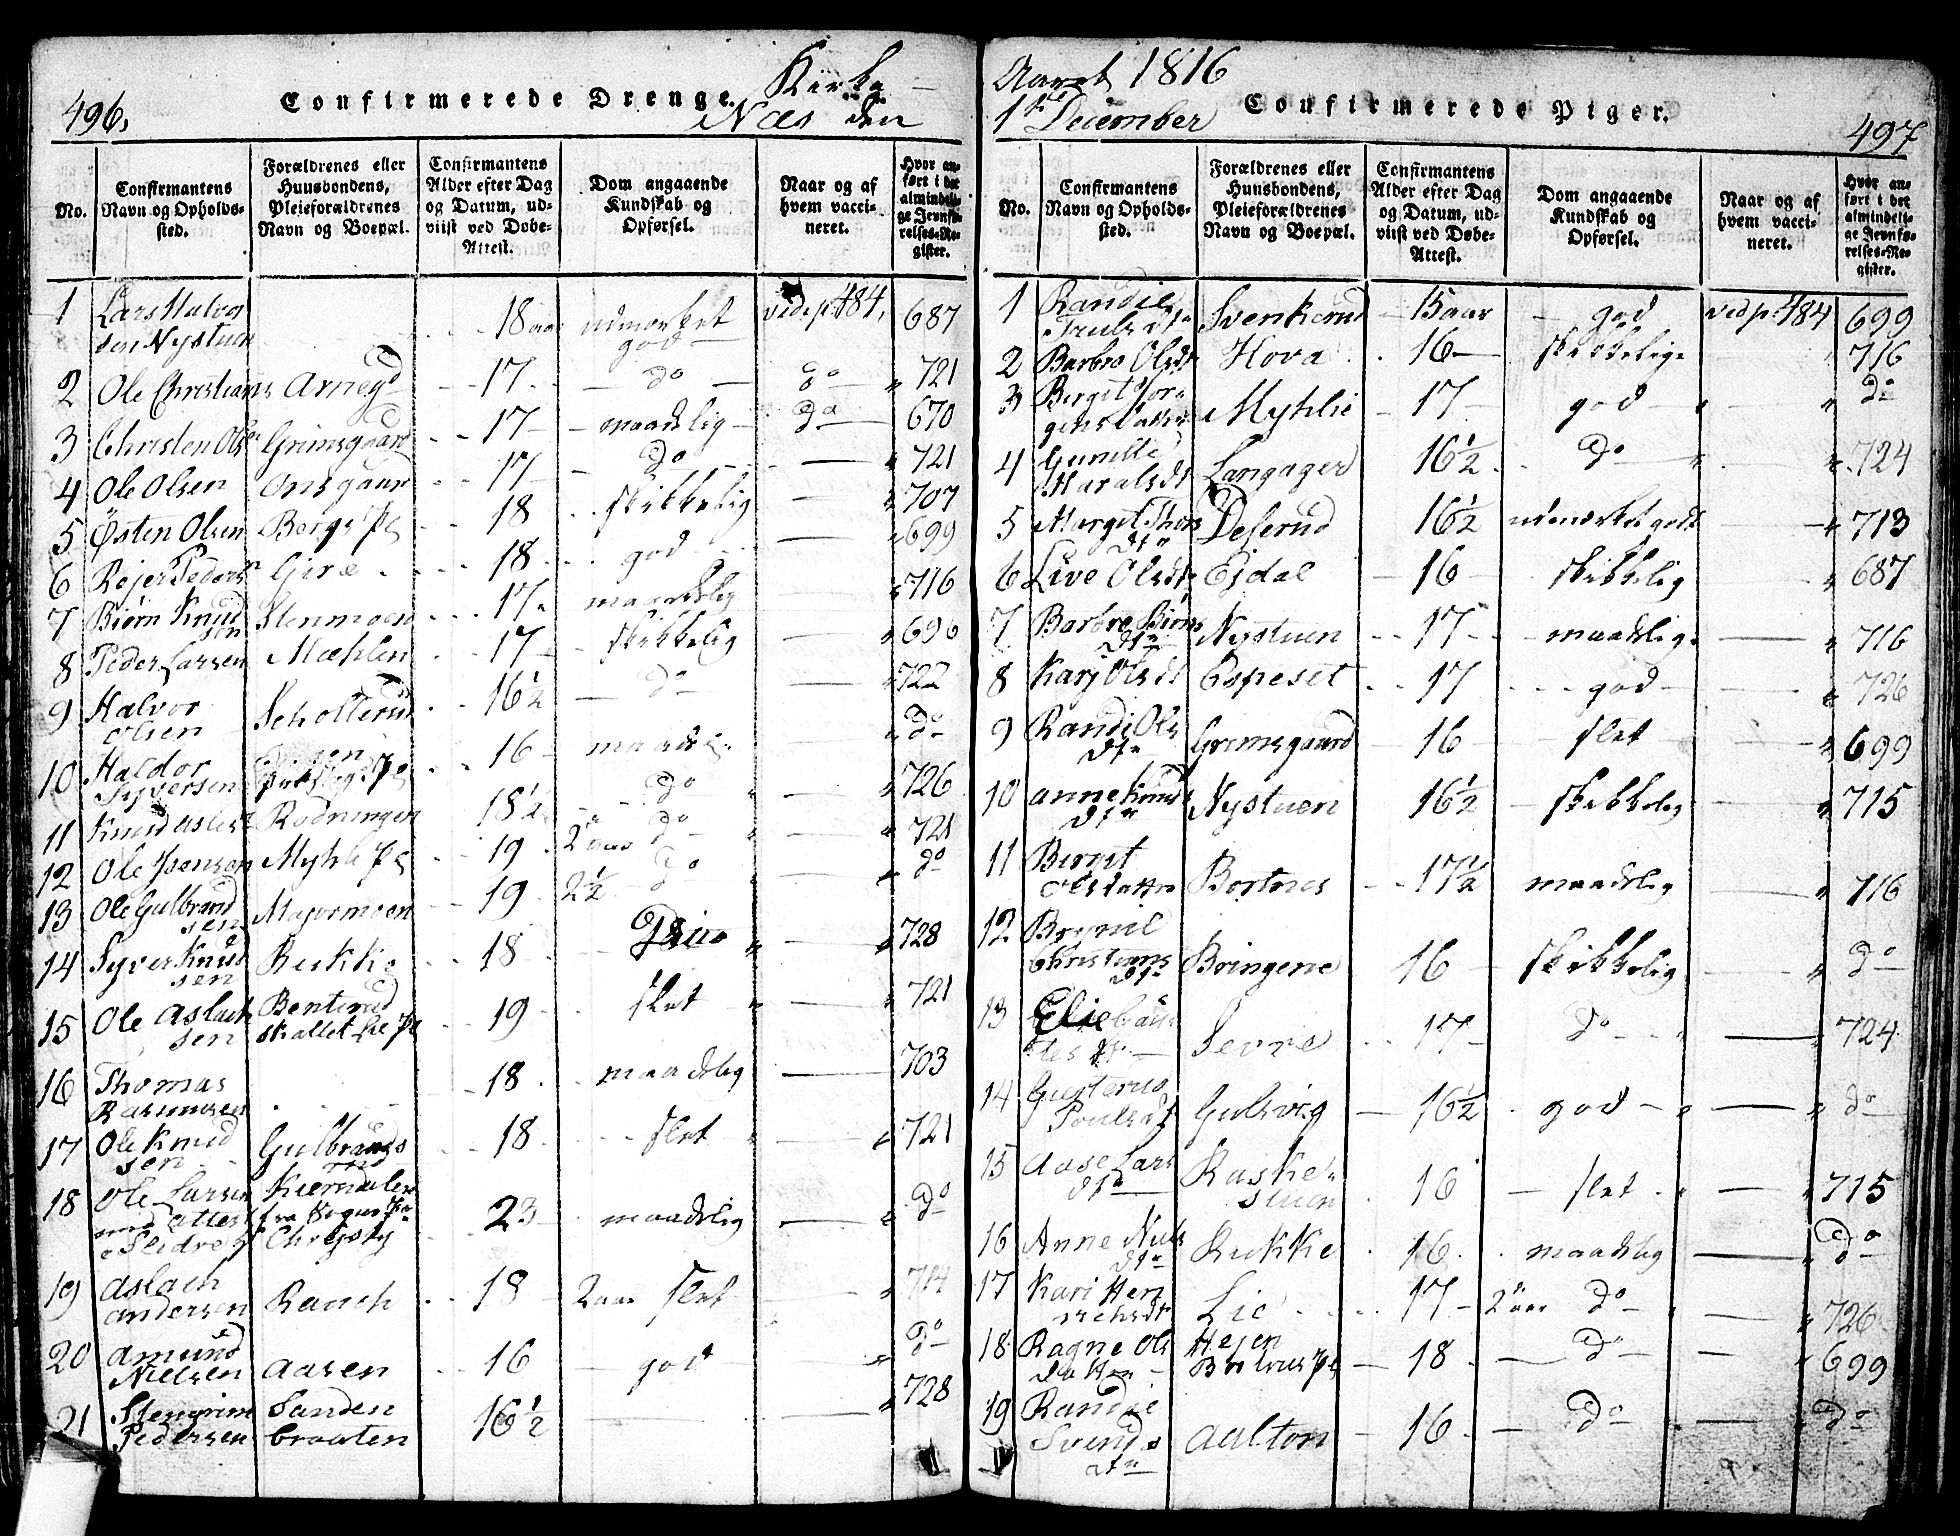 496,
Confirmerede Drenge.
Kirke
Næs den
No.
Confirmantens Navn og Opholds-sted.
Forældrenes eller Huusbondens, Pleieforældrenes Navn og Boepæl.
Confirmantens Alder efter Dag og Datum, ud-viist ved Døbe-Attest.
Dom angaaende Kundskab og Opførsel.
Naar og af hvem vacci-neret.
Hvor an-ført i det almindeli-ge Jevnfø-relses-Re-gister.
1 Lars Halvor sen Nystuen 18 aar udmærket god vide p. 484, 687
2 Ole Christians Arnegd 17 do do 721
3 Christen Ols Grimsgaard 17 maadelig do 670
4 Ole Olsen Onsgaard 17 do 721
5 Østen Olsen Bergs 18 skikkelig 707
6 Rejer Peders 18 god 699
7 Biørn Knud sen Stenmoen 17 maadelig 716
8 Peder Larsen Mæhlen 17 skikkelig 690
9 Halvor Olsen Scholterud 16½ do 722
10 Haldor Syversen 16 maadel. do
11 Knud Rodningen 18½ do 726
12 Ole Myhle 19 2 aar do 721
13 Ole Gulbrand sen Majormoen 19 2½ do do
14 Syver Knud sen Rukke 18 728
15 Ole Aslach sen Benterud Skallet Lie 19 slet 721
16 Thomas Rasmussen 18 maadelig 703
17 Ole Knud sen Gulbrands rud 18 slet 721
18 Ole Larsen med Attest Slidre fra 23 maadelig do
19 Aslach Andersen Ranch 18 2 aar slet 714
20 Amund Nielsen Aasen 16 god do
21 Stengrim Pedersen Sanden braaten 16½ 728
Aaret 1816
1ste December
Confirmerede Piger.
497
No.
Confirmantens Navn og Opholds-sted.
Forældrenes eller Huusbondens, Pleieforældrenes Navn og Boepæl.
Confirmantens Alder efter Dag og Datum, ud-viist ved Døbe-Attest.
Dom angaaende Kundskab og Opførsel.
Naar og af hvem vacci-neret.
Hvor an-ført i det almindeli-ge Jevnfø-relses-Re-gister.
1 Randie Truls dtr Svenkerud 15 aar god vid p. 484 699
2 Barbro Olsdt Hova 16 skikkelig 716
3 Birgit Jør gens datter Myhlie 17 god do
4 Gunild Haralsdt Langager 16½ do 724
5 Marget Thors dtr Deserud 16½ udmærket godt 713
6 Live Olsdt Ejdal 16 skikkelig 687
7 Barbro Biørns dtr Nystuen 17 maadelig 716
8 Karj Olsdt Espeset 17 god 726
9 Randi Ols dtr Grimsgaard 16 slet 699
10 Anne Knuds dtr Nystuen 16½ skikkelig 715
11 Birgit Olsdatter Bortnes 17½ maadelig 716
12 Brynil Christians dtr Bringene 16 skikkelig do
13 Elie Sevre 17 do 724
14 Gulsvig 16½ god do
15 Aase Lars dtr stuen 16 slet 715
16 Anne Niels dtr Rukke 16 maadelig do
17 Kari Hen richsdt Lie 17 2 aar do 726
18 Ragne Ols datter Hejen 18 do 699
19 Randie Svends dtr Aalton 16 do do